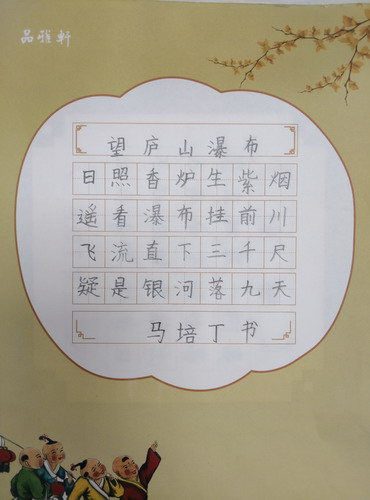 品雅轩
望庐山瀑布
日照香炉生紫烟
遥看瀑布挂前川
飞流直下三千尺
疑是银河落九天
马培丁书